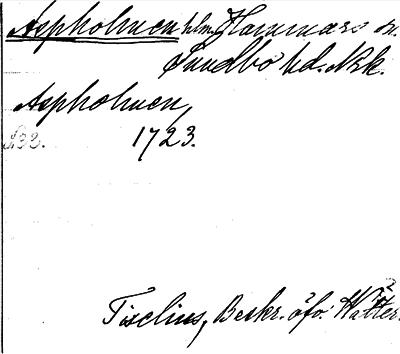 Aspholmen hlm. Hammars sn.
Sundbo hd. Nrk.
Aspholmen,
S. 32. 1723.
Tiselius, Beskr. öfv: Wätter.